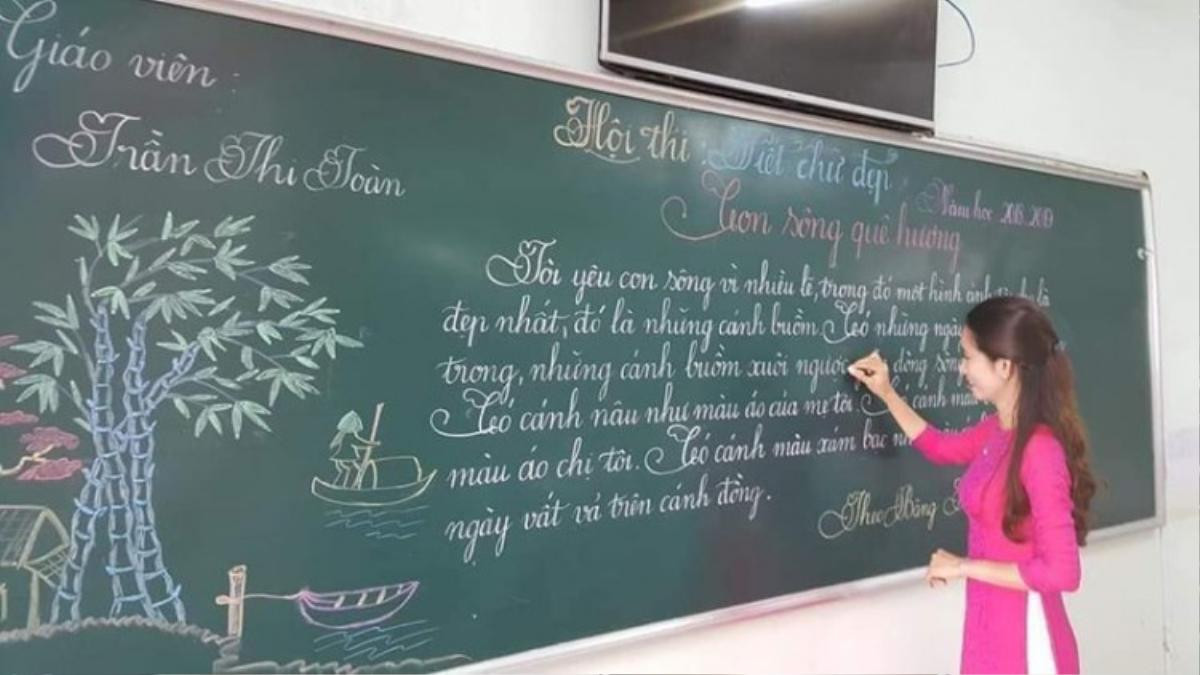 Giáo viên :
Trần Thi Toàn
Hội thi Viết chữ đẹp
Năm học 2018-2019
Con sông quê hương
Tôi yêu con sông vì nhiều lẽ, trong đó một hình ảnh
đẹp nhất, đó là những cánh buồm. Có những ngày
trong, những cánh buồm xuôi ngược dòng sông
Có cánh nâu như màu áo của mẹ tôi. Có cánh màu
màu áo chị tôi. Có cánh màu xám bạc
ngày vất vả trên cánh đồng.
Theo Băng